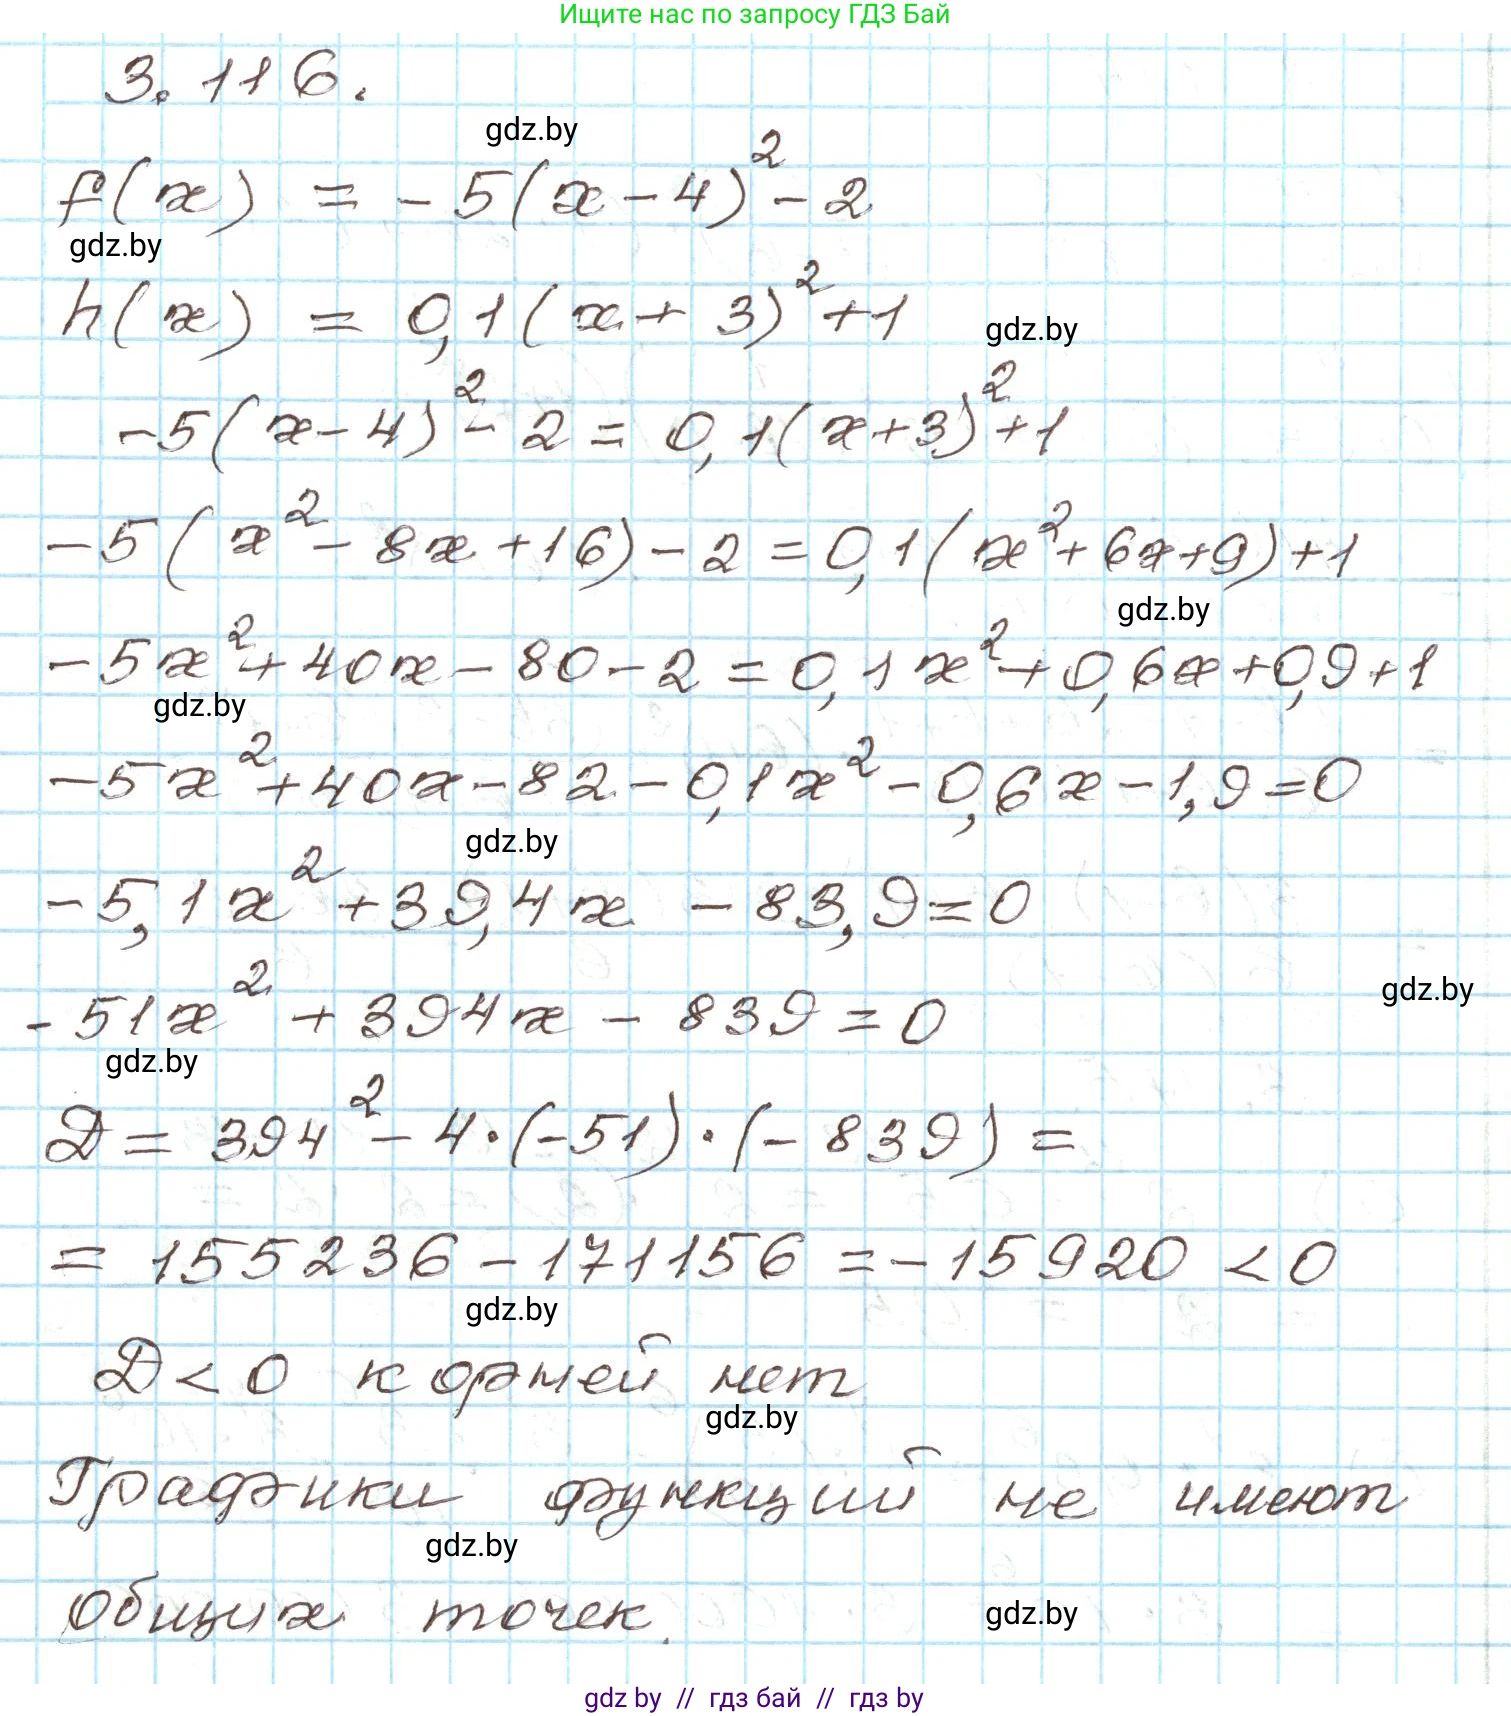 Ищите нас по запросу ГДЗ Бай
3.116.
gdz.by
f(x) = -5(x-4)² - 2
gdz.by
h(x) = 0,1(x+3)² + 1
gdz.by
-5(x-4)² - 2 = 0,1(x+3)² + 1
-5(x² - 8x + 16) - 2 = 0,1(x² + 6x + 9) + 1
gdz.by
-5x² + 40x - 80 - 2 = 0,1x² + 0,6x + 0,9 + 1
gdz.by
-5x² + 40x - 82 - 0,1x² - 0,6x - 1,9 = 0
gdz.by
-5,1x² + 39,4x - 83,9 = 0
gdz.by
-51x² + 394x - 839 = 0
gdz.by
D = 394² - 4·(-51)·(-839) =
= 155236 - 171156 = -15920 < 0
gdz.by
D < 0 корней нет
gdz.by
Графики функций не имеют
gdz.by
общих точек.
gdz.by
gdz by // гдз бай // гдз by